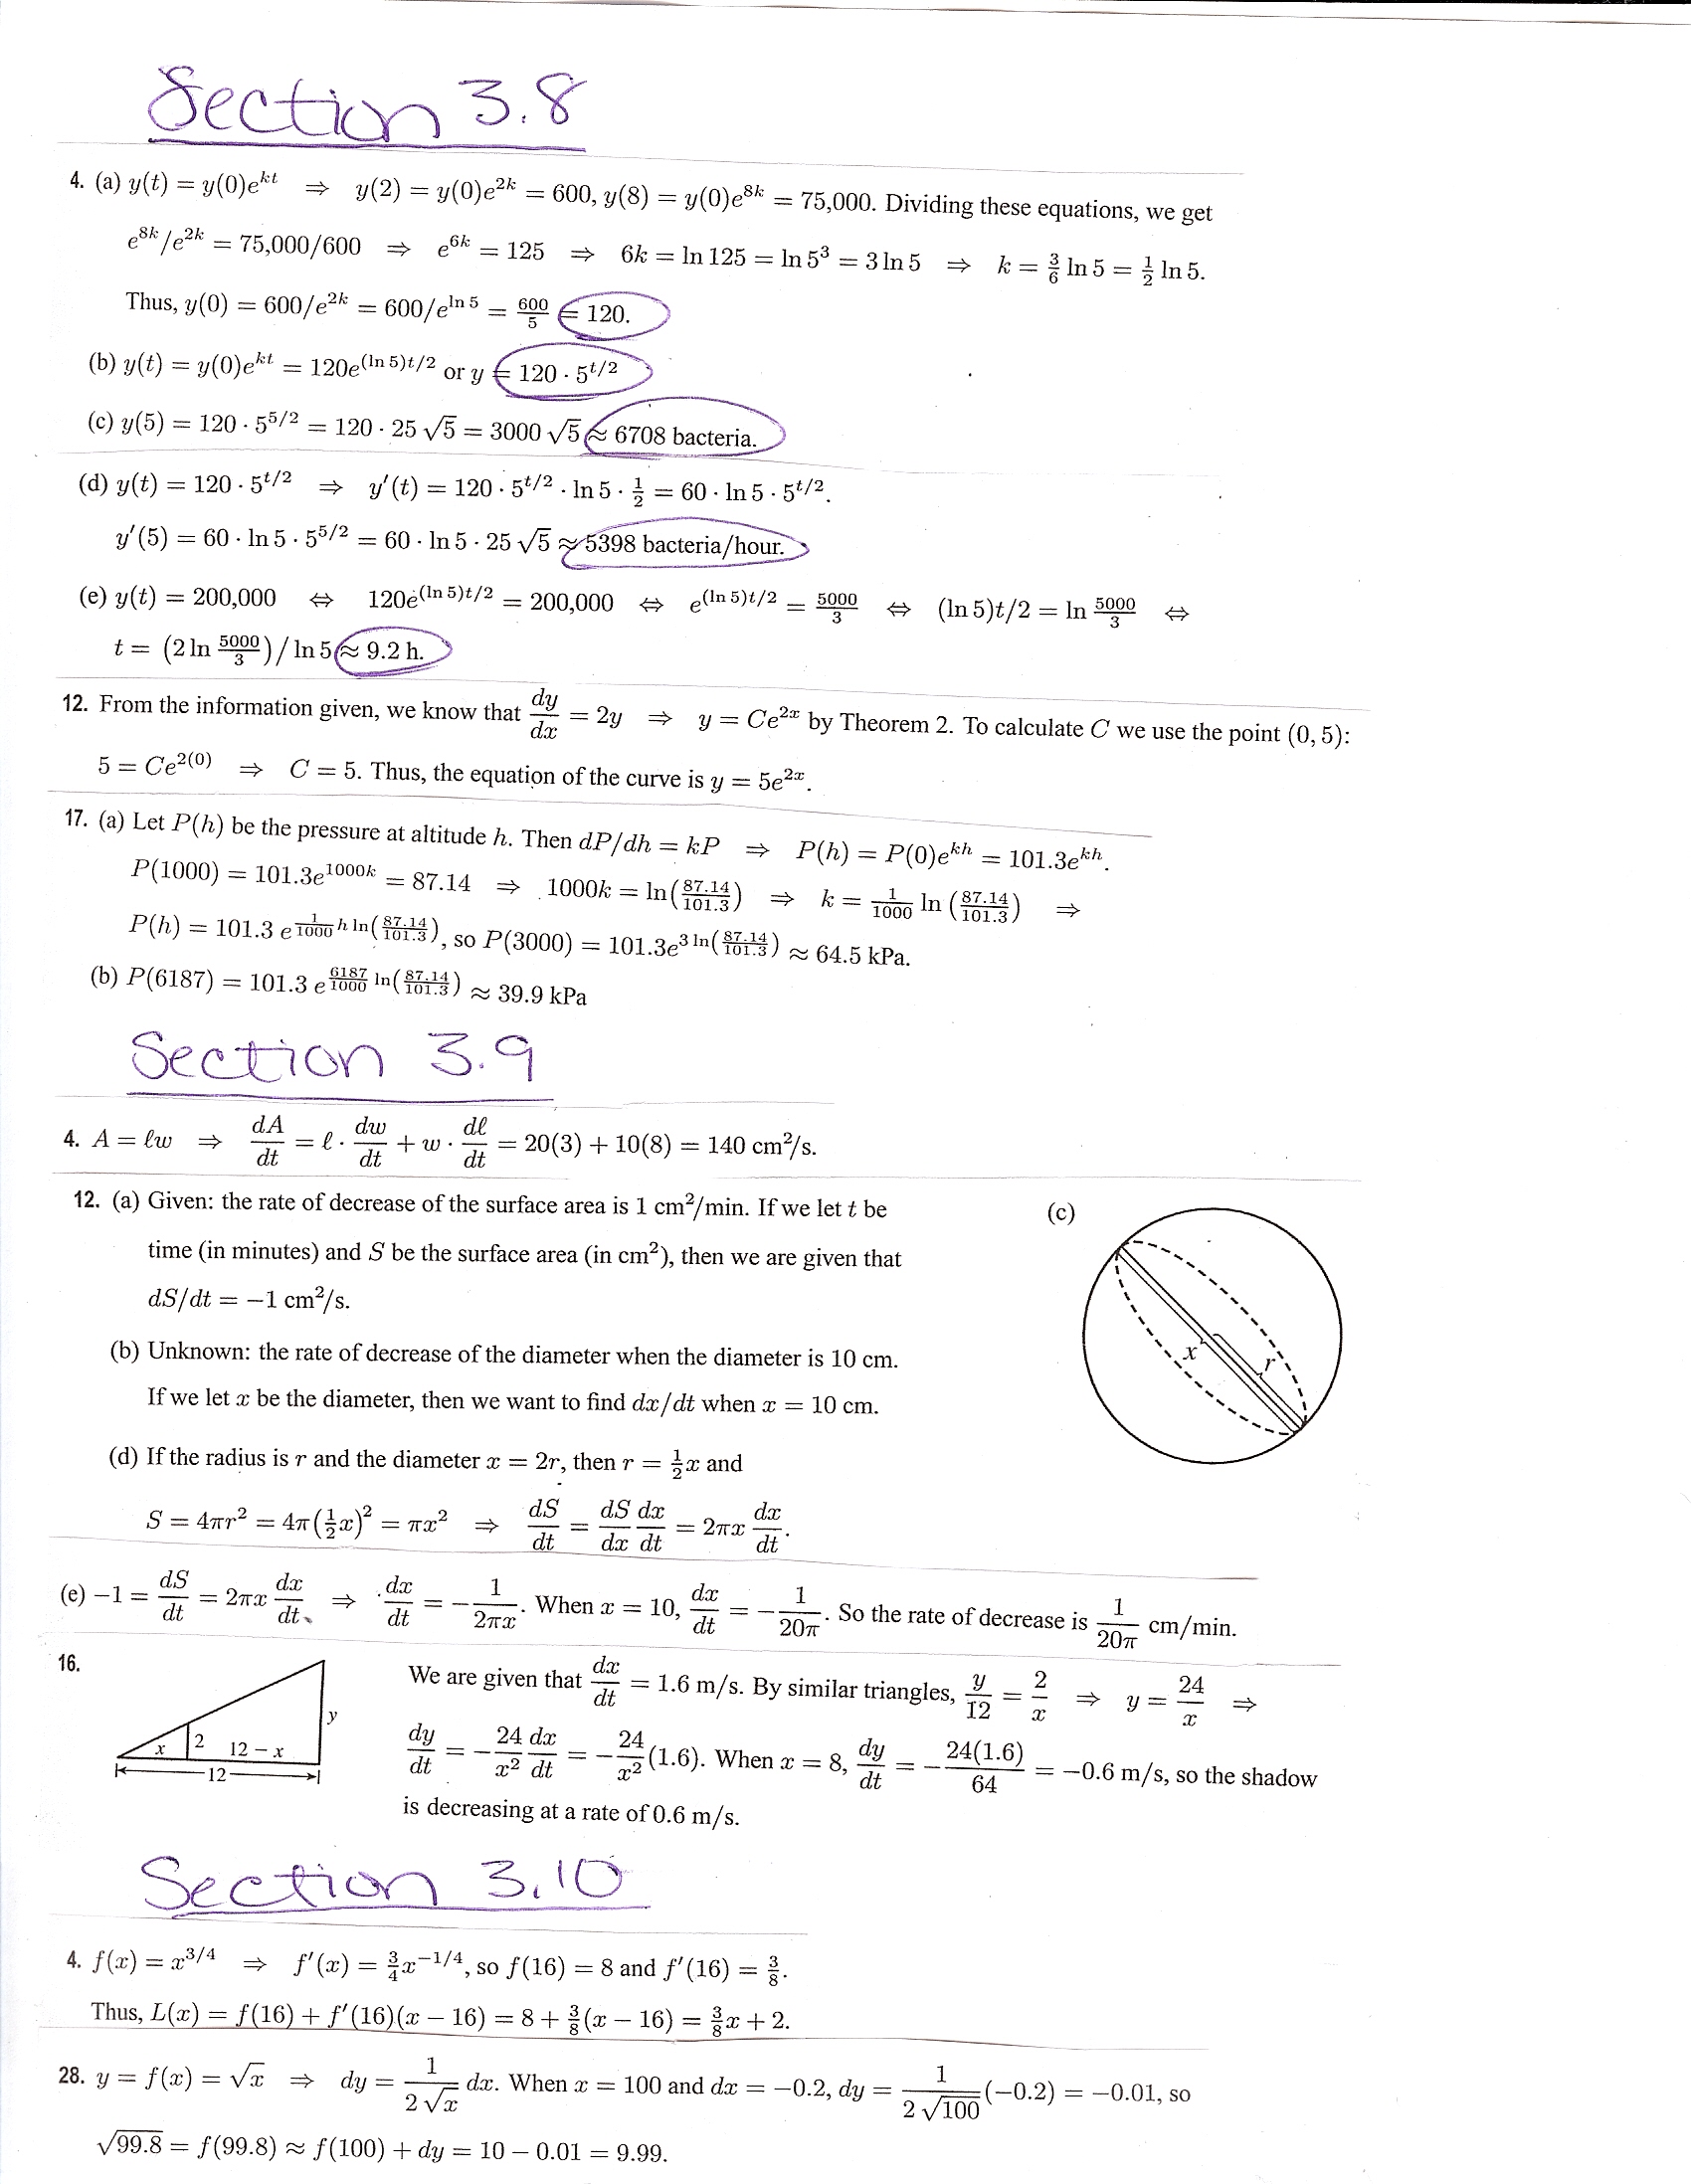 Section 3.8
4. (a) y(t) = y(0)e^{kt} ⇒ y(2) = y(0)e^{2k} = 600, y(8) = y(0)e^{8k} = 75,000. Dividing these equations, we get
e^{8k}/e^{2k} = 75,000/600 ⇒ e^{6k} = 125 ⇒ 6k = ln 125 = ln 5³ = 3 ln 5 ⇒ k = 3/6 ln 5 = 1/2 ln 5.
Thus, y(0) = 600/e^{2k} = 600/e^{ln 5} = 600/5 = 120.
(b) y(t) = y(0)e^{kt} = 120e^{(ln 5)t/2} or y = 120 · 5^{t/2}
(c) y(5) = 120 · 5^{5/2} = 120 · 25 √5 = 3000 √5 ≈ 6708 bacteria.
(d) y(t) = 120 · 5^{t/2} ⇒ y′(t) = 120 · 5^{t/2} · ln 5 · 1/2 = 60 · ln 5 · 5^{t/2}.
y′(5) = 60 · ln 5 · 5^{5/2} = 60 · ln 5 · 25 √5 ≈ 5398 bacteria/hour.
(e) y(t) = 200,000 ⇔ 120e^{(ln 5)t/2} = 200,000 ⇔ e^{(ln 5)t/2} = 5000/3 ⇔ (ln 5)t/2 = ln 5000/3 ⇔
t = (2 ln 5000/3)/ ln 5 ≈ 9.2 h.
12. From the information given, we know that dy/dx = 2y ⇒ y = Ce^{2x} by Theorem 2. To calculate C we use the point (0, 5):
5 = Ce^{2(0)} ⇒ C = 5. Thus, the equation of the curve is y = 5e^{2x}.
17. (a) Let P(h) be the pressure at altitude h. Then dP/dh = kP ⇒ P(h) = P(0)e^{kh} = 101.3e^{kh}.
P(1000) = 101.3e^{1000k} = 87.14 ⇒ 1000k = ln(87.14/101.3) ⇒ k = 1/1000 ln (87.14/101.3) ⇒
P(h) = 101.3 e^{1/1000 h ln(87.14/101.3)}, so P(3000) = 101.3e^{3 ln(87.14/101.3)} ≈ 64.5 kPa.
(b) P(6187) = 101.3 e^{6187/1000 ln(87.14/101.3)} ≈ 39.9 kPa
Section 3.9
4. A = ℓw ⇒ dA/dt = ℓ · dw/dt + w · dℓ/dt = 20(3) + 10(8) = 140 cm²/s.
12. (a) Given: the rate of decrease of the surface area is 1 cm²/min. If we let t be
time (in minutes) and S be the surface area (in cm²), then we are given that
dS/dt = −1 cm²/s.
(b) Unknown: the rate of decrease of the diameter when the diameter is 10 cm.
If we let x be the diameter, then we want to find dx/dt when x = 10 cm.
(c)
x
r
(d) If the radius is r and the diameter x = 2r, then r = 1/2 x and
S = 4πr² = 4π(1/2 x)² = πx² ⇒ dS/dt = dS/dx dx/dt = 2πx dx/dt.
(e) −1 = dS/dt = 2πx dx/dt ⇒ dx/dt = − 1/2πx. When x = 10, dx/dt = − 1/20π. So the rate of decrease is 1/20π cm/min.
16.
y
x 2 12 − x
12
We are given that dx/dt = 1.6 m/s. By similar triangles, y/12 = 2/x ⇒ y = 24/x ⇒
dy/dt = − 24/x² dx/dt = − 24/x² (1.6). When x = 8, dy/dt = − 24(1.6)/64 = −0.6 m/s, so the shadow
is decreasing at a rate of 0.6 m/s.
Section 3.10
4. f(x) = x^{3/4} ⇒ f′(x) = 3/4 x^{−1/4}, so f(16) = 8 and f′(16) = 3/8.
Thus, L(x) = f(16) + f′(16)(x − 16) = 8 + 3/8(x − 16) = 3/8 x + 2.
28. y = f(x) = √x ⇒ dy = 1/2√x dx. When x = 100 and dx = −0.2, dy = 1/2√100 (−0.2) = −0.01, so
√99.8 = f(99.8) ≈ f(100) + dy = 10 − 0.01 = 9.99.